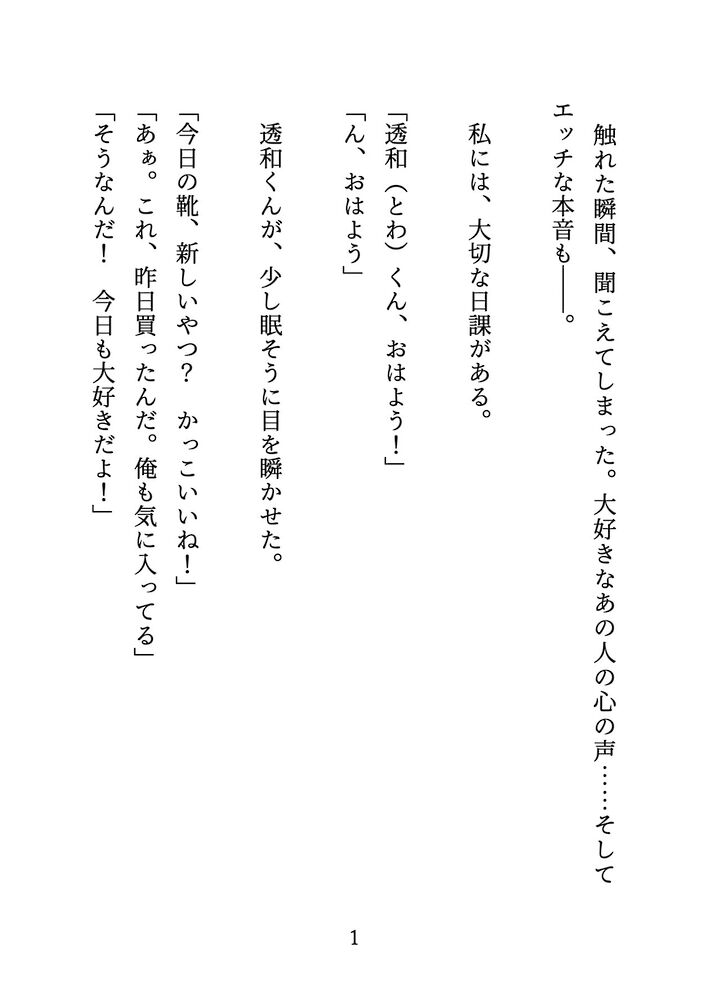 触れた瞬間、聞こえてしまった。大好きなあの人の心の声……そして
エッチな本音も――。
　私には、大切な日課がある。
「透和（とわ）くん、おはよう！」
「ん、おはよう」
　透和くんが、少し眠そうに目を瞬かせた。
「今日の靴、新しいやつ？　かっこいいね！」
「あぁ。これ、昨日買ったんだ。俺も気に入ってる」
「そうなんだ！　今日も大好きだよ！」
1